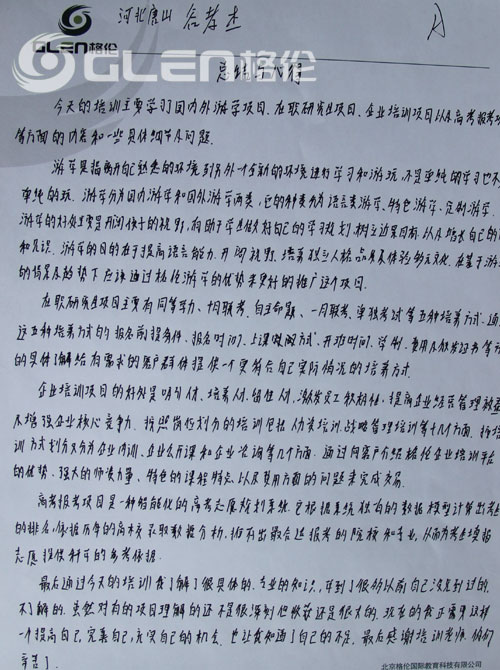 GLEN格伦
河北唐山
GLEN格伦
总结与心得
今天的培训主要学习国内外游学项目、在职研究生项目、企业培训项目以及高考报考项
等方面的内容和一些具体细节及问题.
游学是指离开自己熟悉的环境到另外一个全新的环境进行学习和游玩,不是单纯的学习也不
单纯的玩. 游学分为国内游学和国外游学两类,它的种类分为语言类游学、特色游学、定制游学.
游学的好处主要是开阔孩子的视野,有助于学生做好自己的学习规划,树立边界固有,以及增长自己的
和见识. 游学的目的在于提高语言能力、开阔视野、培养独立人格品质及体验多元文化,在基于游
的背景及趋势下应该通过格伦游学的优势来更好的推广这个项目.
在职研究生项目主要有同等学力、十月联考、自主命题、一月联考、单独考试等五种培养方式. 通
这五种培养方式的报名前提条件、报名时间、上课方式、开班时间、学制、费用及颁发证书等
的具体了解给有需求的客户群体提供一个更符合自己实际情况的培养方式.
企业培训项目的好处是吸引人才、培养人才、留住人才,激发员工积极性,提高企业经营管理效益
及增强企业核心竞争力. 按照岗位划分的培训包括人力类培训、战略管理培训等十几方面. 按培
训方式划分又分为企业内训、企业公开课和企业论调等几个方面. 通过向客户介绍格伦企业培训平台
的优势、强大的师资力量、特色的课程特点以及费用方面的问题来完成交易.
高考报考项目是一种智能化的高考志愿规划系统. 它根据系统独有的数据模型计算出考生
的排名,依据历年的高校录取数据分析,推荐出最合适报考的院校和专业,从而为考生填报
志愿提供科学的参考依据.
最后通过今天的培训我了解了很具体的、专业的知识,学到了很多以前自己没见到过的,
不了解的. 虽然对有的项目理解的还不是很深刻但收获还是很大的. 现在的我正需要这样
一个提高自己,完善自己,充实自己的机会,也让我知道了自己的不足. 最后感谢培训老师 你们
辛苦了.
北京格伦国际教育科技有限公司